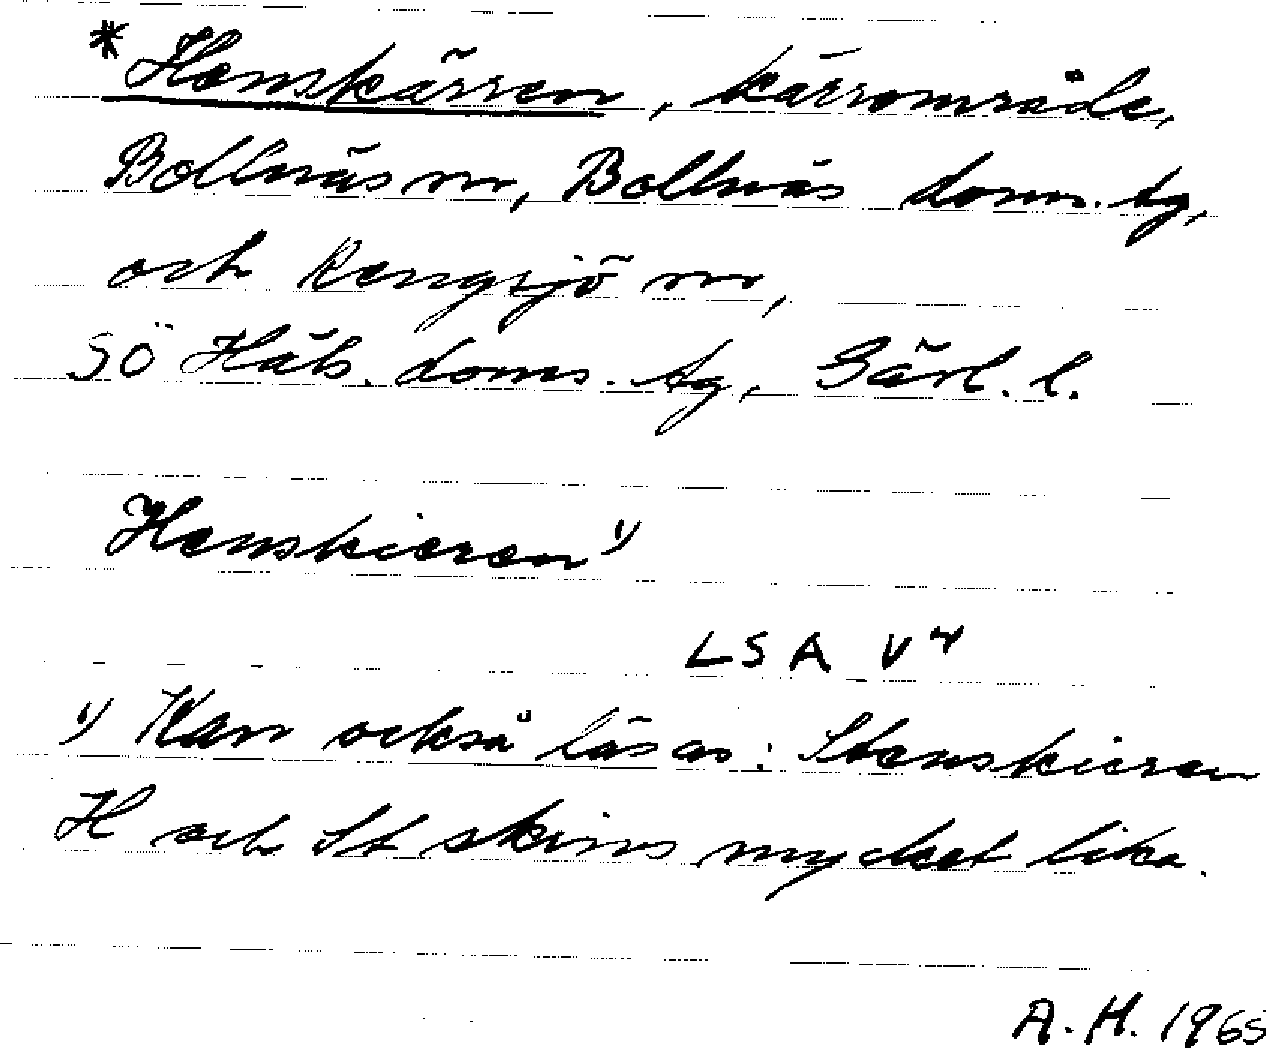 *Henskärren, kärrområde,
Bollnäs sn, Bollnäs doms. tg,
och Rengsjö sn,
SÖ Häls. doms. tg, Gävl. l.
Henskieren 1)
LSA V4
1) Kan också läsas: Stenskieren
H och St skrivs mycket lika.
A. H. 1965